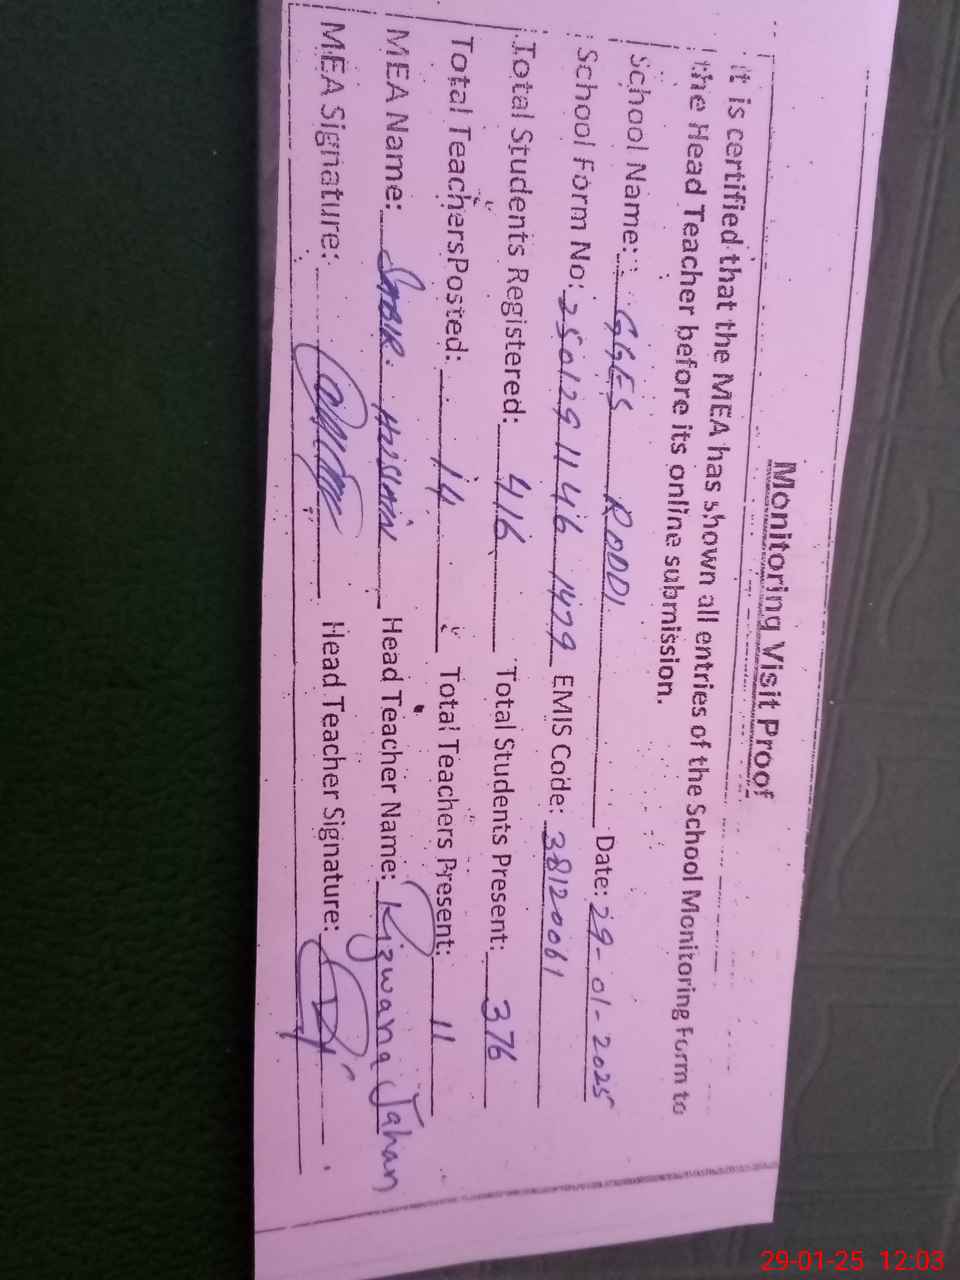 Monitoring Visit Proof
It is certified that the MEA has shown all entries of the School Monitoring Form to
the Head Teacher before its online submission.
School Name: GGES RODDI Date: 29-01-2025
School Form No: 250129 1146 1479 EMIS Code: 38120061
Total Students Registered: 416 Total Students Present: 376
Total Teachers Posted: 14 Total Teachers Present: 11
MEA Name: SABIR HUSSAIN Head Teacher Name: Rizwana Jahan
MEA Signature: Head Teacher Signature:
29-01-25 12:03